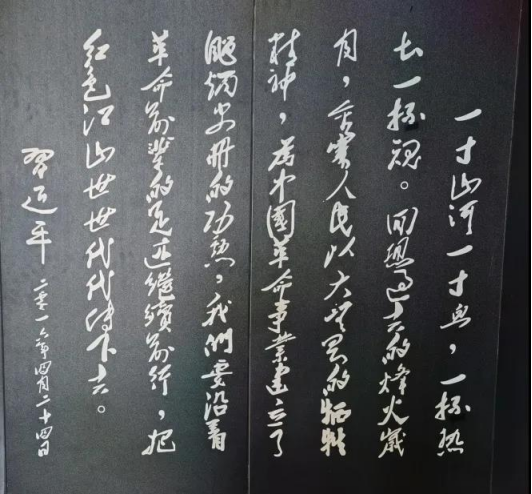 一寸山河一寸血，一抔热
土一抔魂。回想过去的烽火歲
月，金寨人民以大無畏的牺牲
精神，為中國革命事業建立了
彪炳史册的功勋，我們要沿着
革命前輩的足迹繼續前行，把
紅色江山世世代代傳下去。
習近平
二零一六年四月二十四日